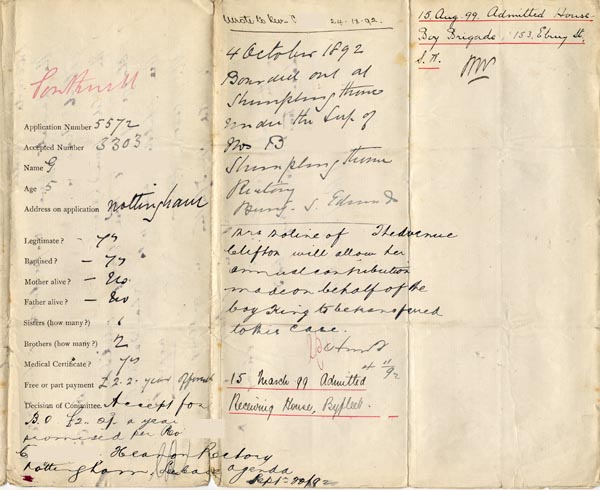 Application Number 5572
Accepted Number 3303
Name G
Age 5
Address on application nottingham
Legitimate? - ys
Baptised? - ys
Mother alive? - No
Father alive? - No
Sisters (how many?)
Brothers (how many?) 2
Medical Certificate? ys
Free or part payment £2.2. year
Decision of Committee. Accept for
B.O. £2 a year
promised per Rev
Rectory
nottingham, agenda
Sept 20/92
Wrote to Rev. C 24.12.92.
4 October 1892
Boarded out at
Shimplingthorne
under the Sup of
Mrs B
Shimplingthorne
Rectory
Bury S. Edmunds
of The Avenue
Clifton will allow her
annual contribution
made on behalf of the
boy King to be transferred
to this case.
11/92
15 March 99 Admitted
Receiving House, Byfleet.
15. Aug. 99 Admitted House-
Boy Brigade, 153, Ebury St,
S.W.